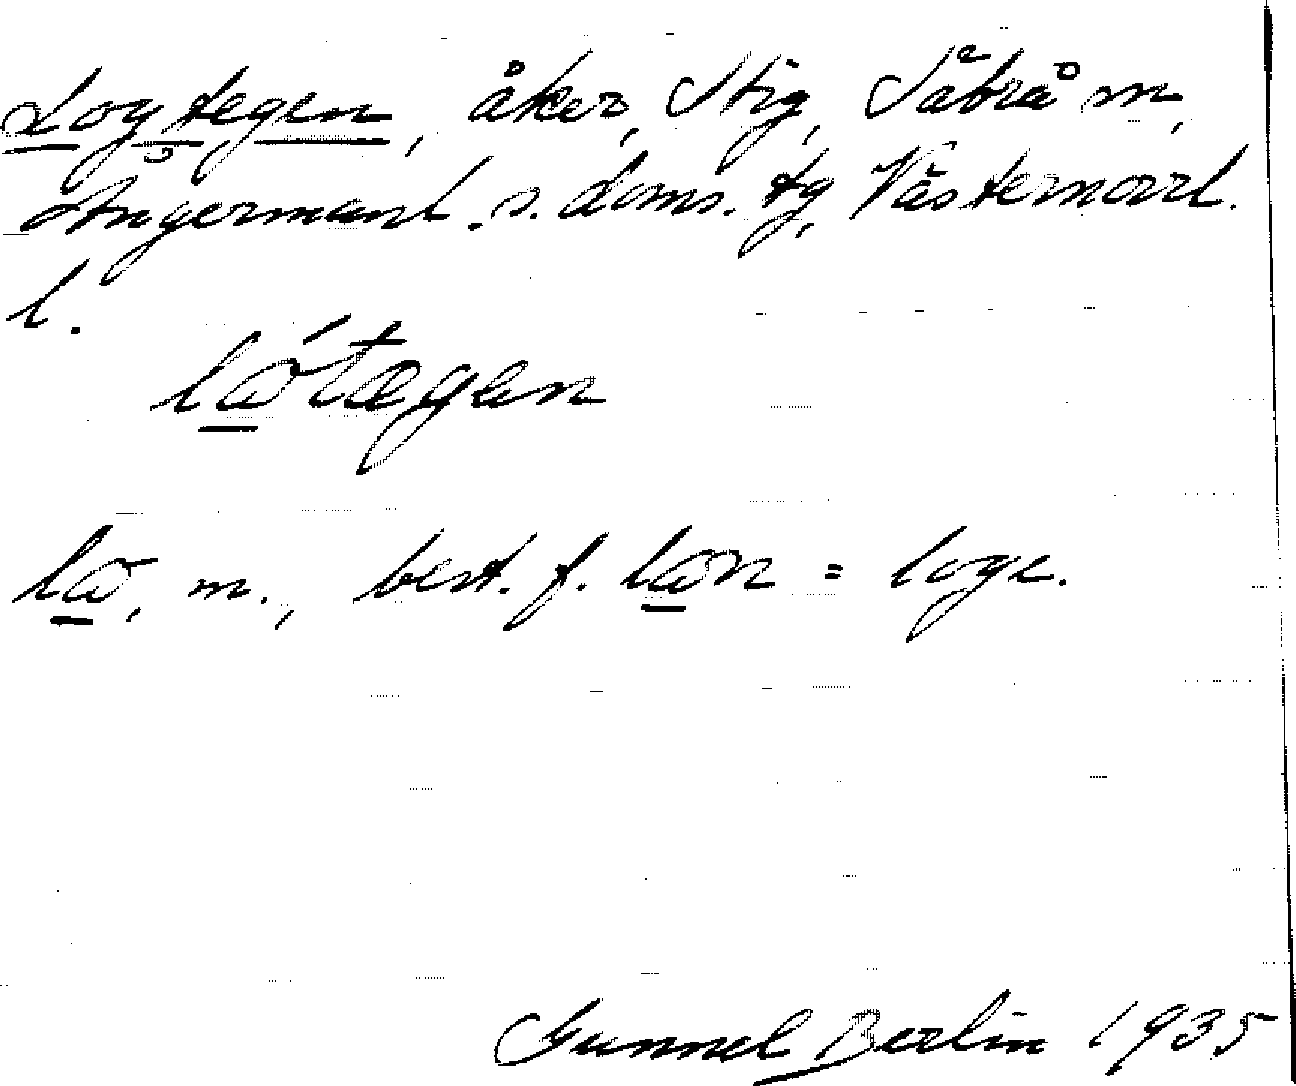 Logtegen, åker, Stig, Säbrå sn,
Ångermanl. s. doms. tg, Västernorrl.
l.
lótægen
lo, m., best. f. lon = loge.
Gunnel Berlin 1935